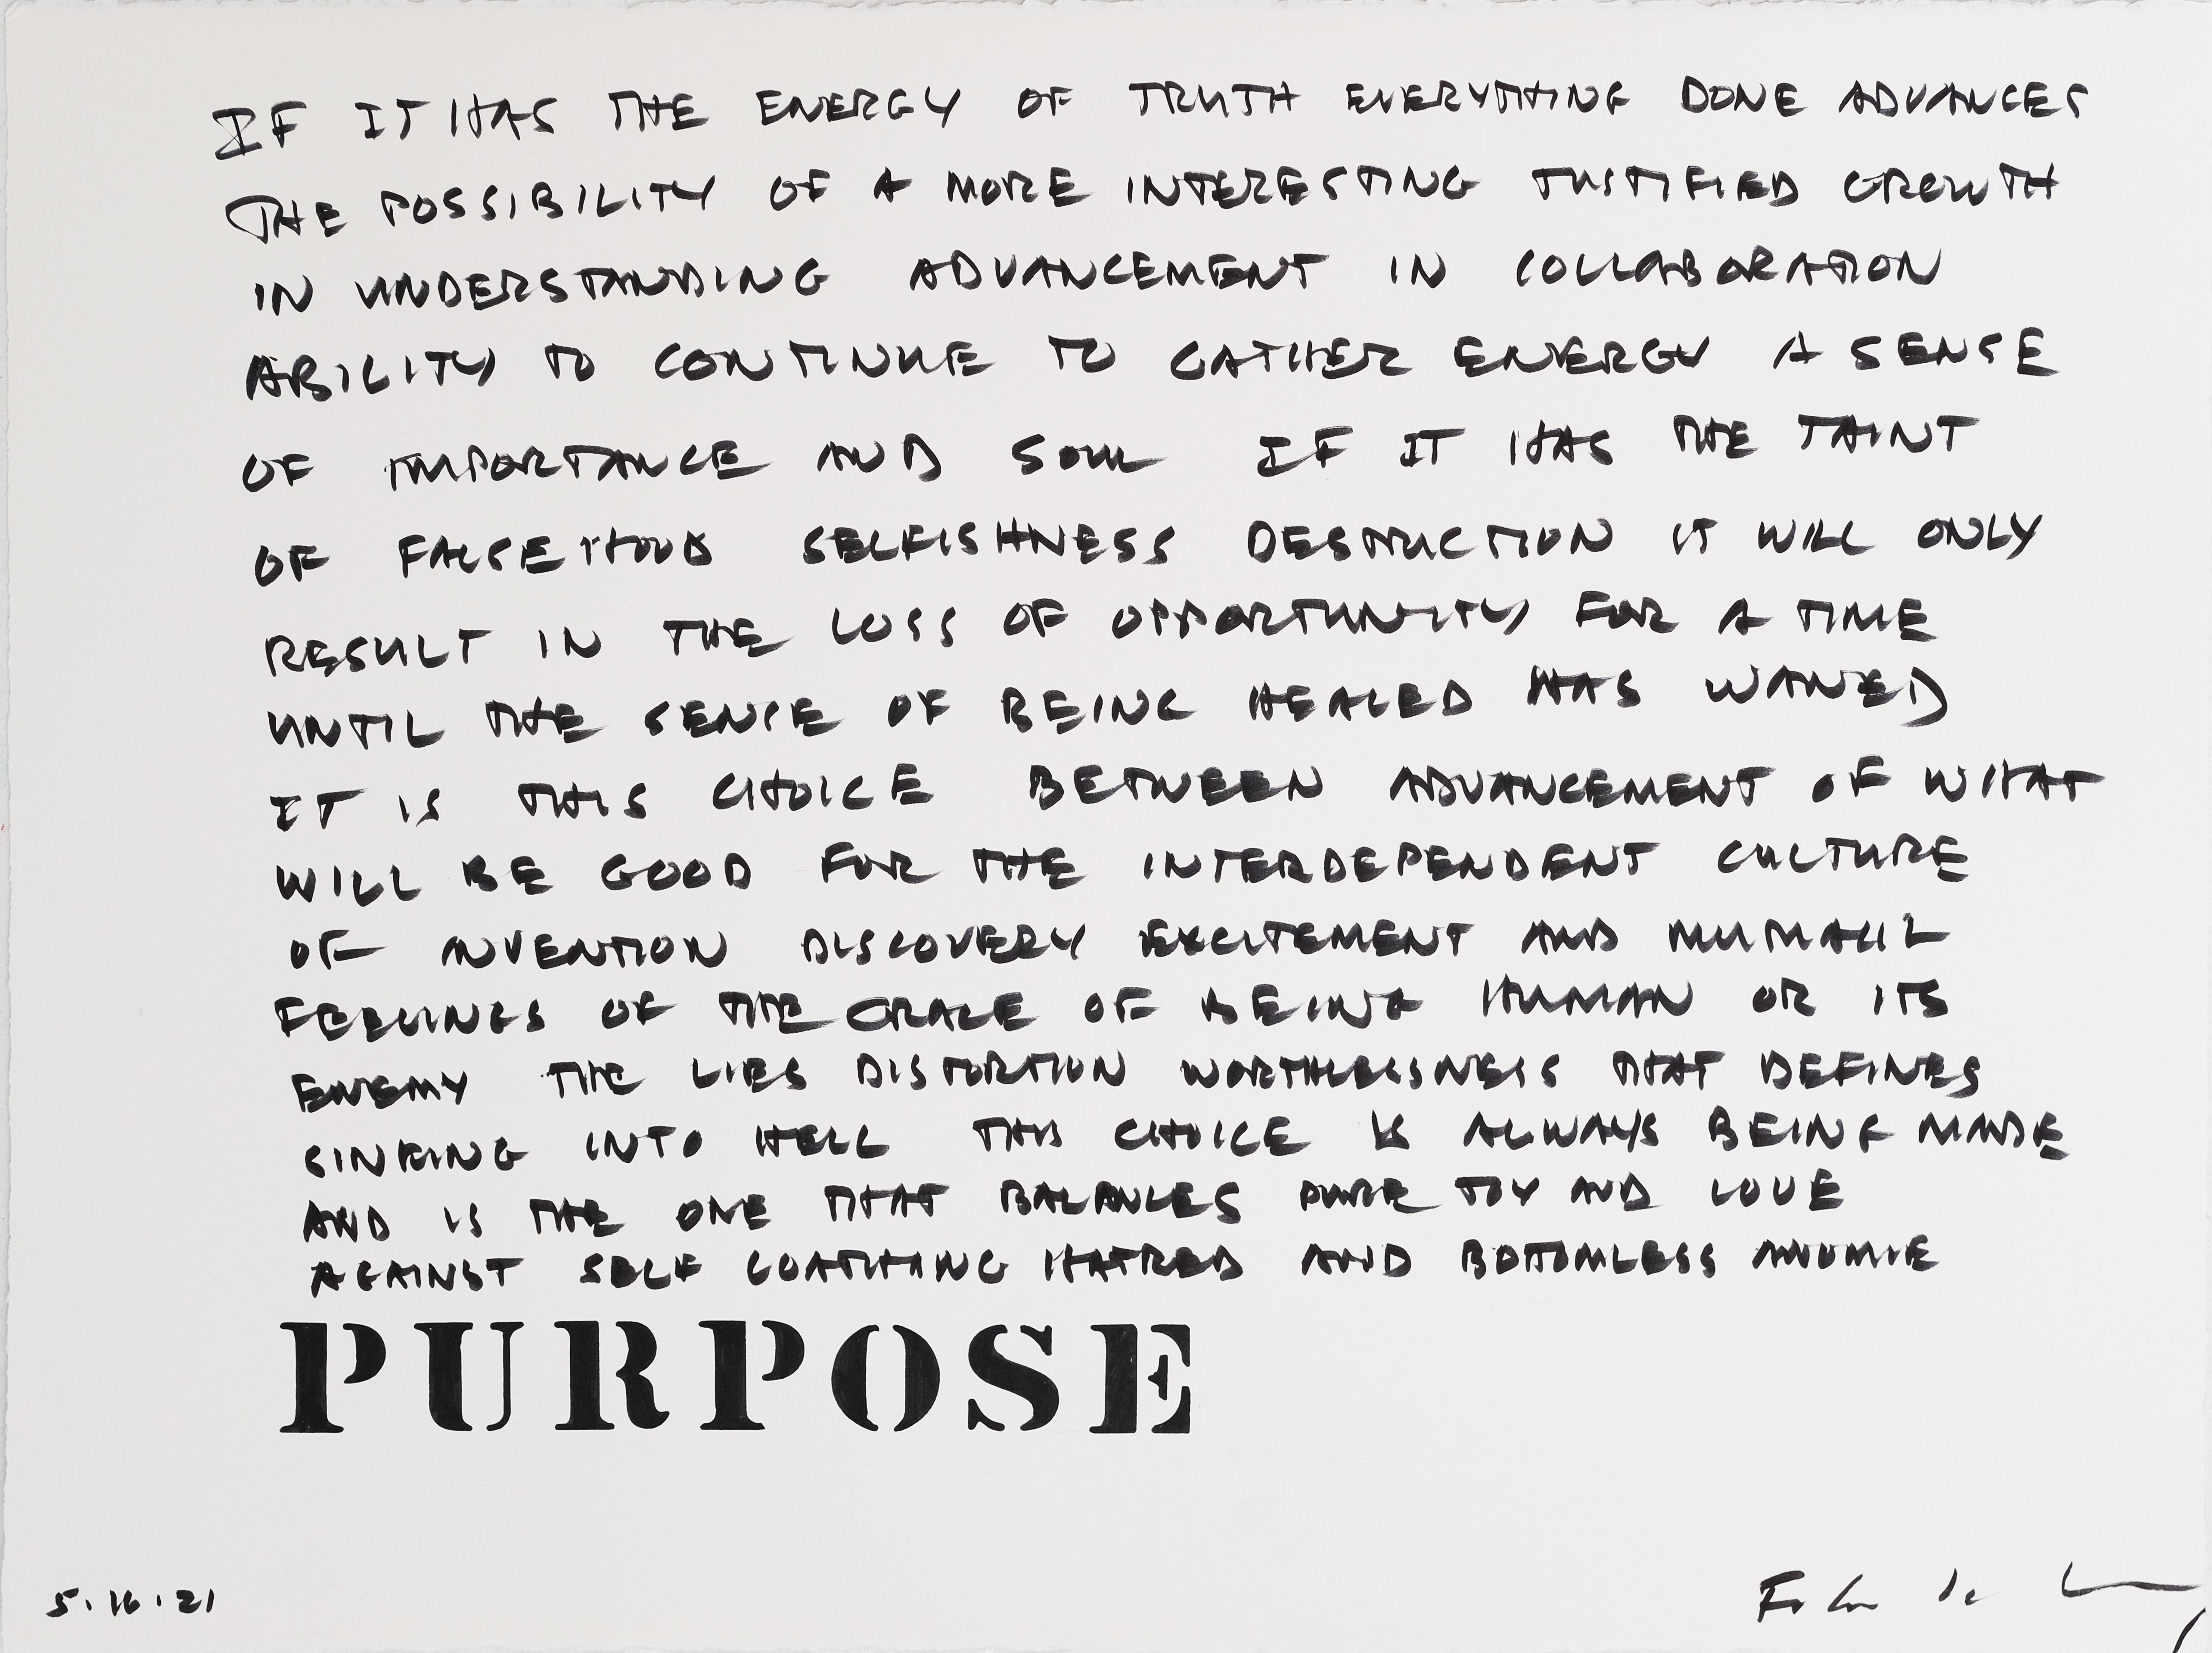 IF IT HAS THE ENERGY OF TRUTH EVERYTHING DONE ADVANCES
THE POSSIBILITY OF A MORE INTERESTING JUSTIFIED GROWTH
IN UNDERSTANDING ADVANCEMENT IN COLLABORATION
ABILITY TO CONTINUE TO GATHER ENERGY A SENSE
OF IMPORTANCE AND SOUL IF IT HAS THE TAINT
OF FALSEHOOD SELFISHNESS DESTRUCTION IT WILL ONLY
RESULT IN THE LOSS OF OPPORTUNITY FOR A TIME
UNTIL THE SENSE OF BEING HEALED HAS WANED
IT IS THIS CHOICE BETWEEN ADVANCEMENT OF WHAT
WILL BE GOOD FOR THE INTERDEPENDENT CULTURE
OF INVENTION DISCOVERY EXCITEMENT AND
FEELINGS OF THE GRACE OF BEING HUMAN OR ITS
ENEMY THE LIES DISTORTION WORTHLESSNESS THAT DEFINES
SINKING INTO HELL THIS CHOICE IS ALWAYS BEING MADE
AND IS THE ONE THAT BALANCES PURE JOY AND LOVE
AGAINST SELF LOATHING HATRED AND BOTTOMLESS ANOMIE
PURPOSE
5.16.21